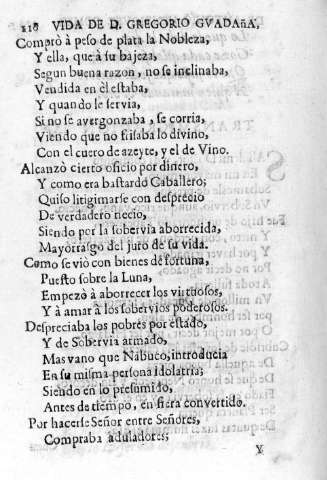 218 VIDA DE D. GREGORIO GVADAñA.
Comprò à peso de plata la Nobleza,
Y ella, que à su bajeza,
Segun buena razon, no se inclinaba,
Vendida en èl estaba,
Y quando le servia,
Si no se avergonzaba, se corria,
Viendo que no frisaba lo divino,
Con el cuero de azeyte, y el de Vino.
Alcanzò cierto oficio por dinero,
Y como era bastardo Caballero;
Quiso litigimarse con desprecio
De verdadero necio,
Siendo por la sobervia aborrecida,
Mayorrasgo del juro de su vida.
Como se viò con bienes de fortuna,
Puesto sobre la Luna,
Empezò à aborrecer los virtuosos,
Y à amar à los sobervios poderosos.
Despreciaba los pobres por estado,
Y de Sobervia armado,
Mas vano que Nabuco, introducia
En su misma persona idolatria;
Siendo en lo presumido,
Antes de tiempo, en fiera convertido.
Por hacerse Señor entre Señores,
Compraba aduladores;
Y